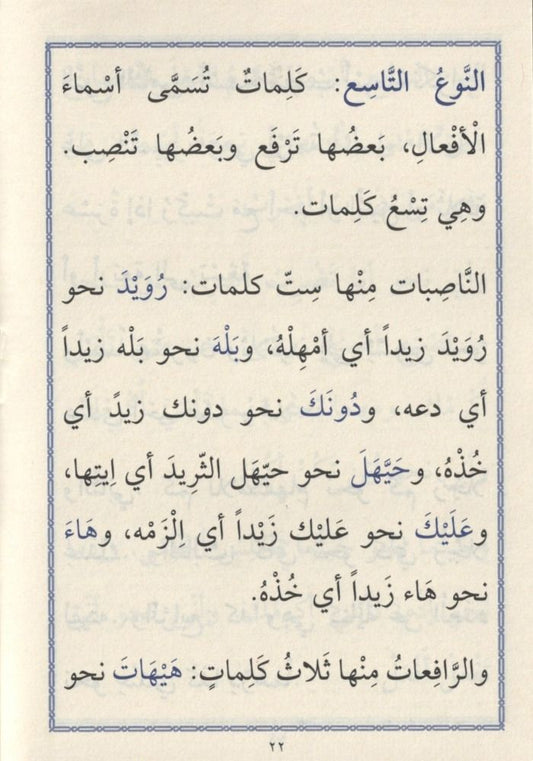 النَّوعُ التَّاسِع: كَلِماتٌ تُسَمَّى أسْماءَ
الْأفْعالِ، بَعضُها تَرْفَع وبَعضُها تَنْصِب.
وهِي تِسْعُ كَلِمات.
النَّاصِبات مِنْها سِتّ كلمات: رُوَيْدَ نحو
رُوَيْدَ زيداً أي أمْهِلْهُ، وبَلْهَ نحو بَلْه زيداً
أي دعه، ودُونَكَ نحو دونك زيدً أي
خُذْهُ، وحَيَّهَلَ نحو حيّهَل الثّرِيدَ أي اِيتِها،
وعَلَيْكَ نحو عَليْك زَيْداً أي اِلْزَمْه، وهَاءَ
نحو هَاء زَيداً أي خُذْهُ.
والرَّافِعاتُ مِنْها ثَلاثُ كَلِماتٍ: هَيْهَاتَ نحو
٢٢